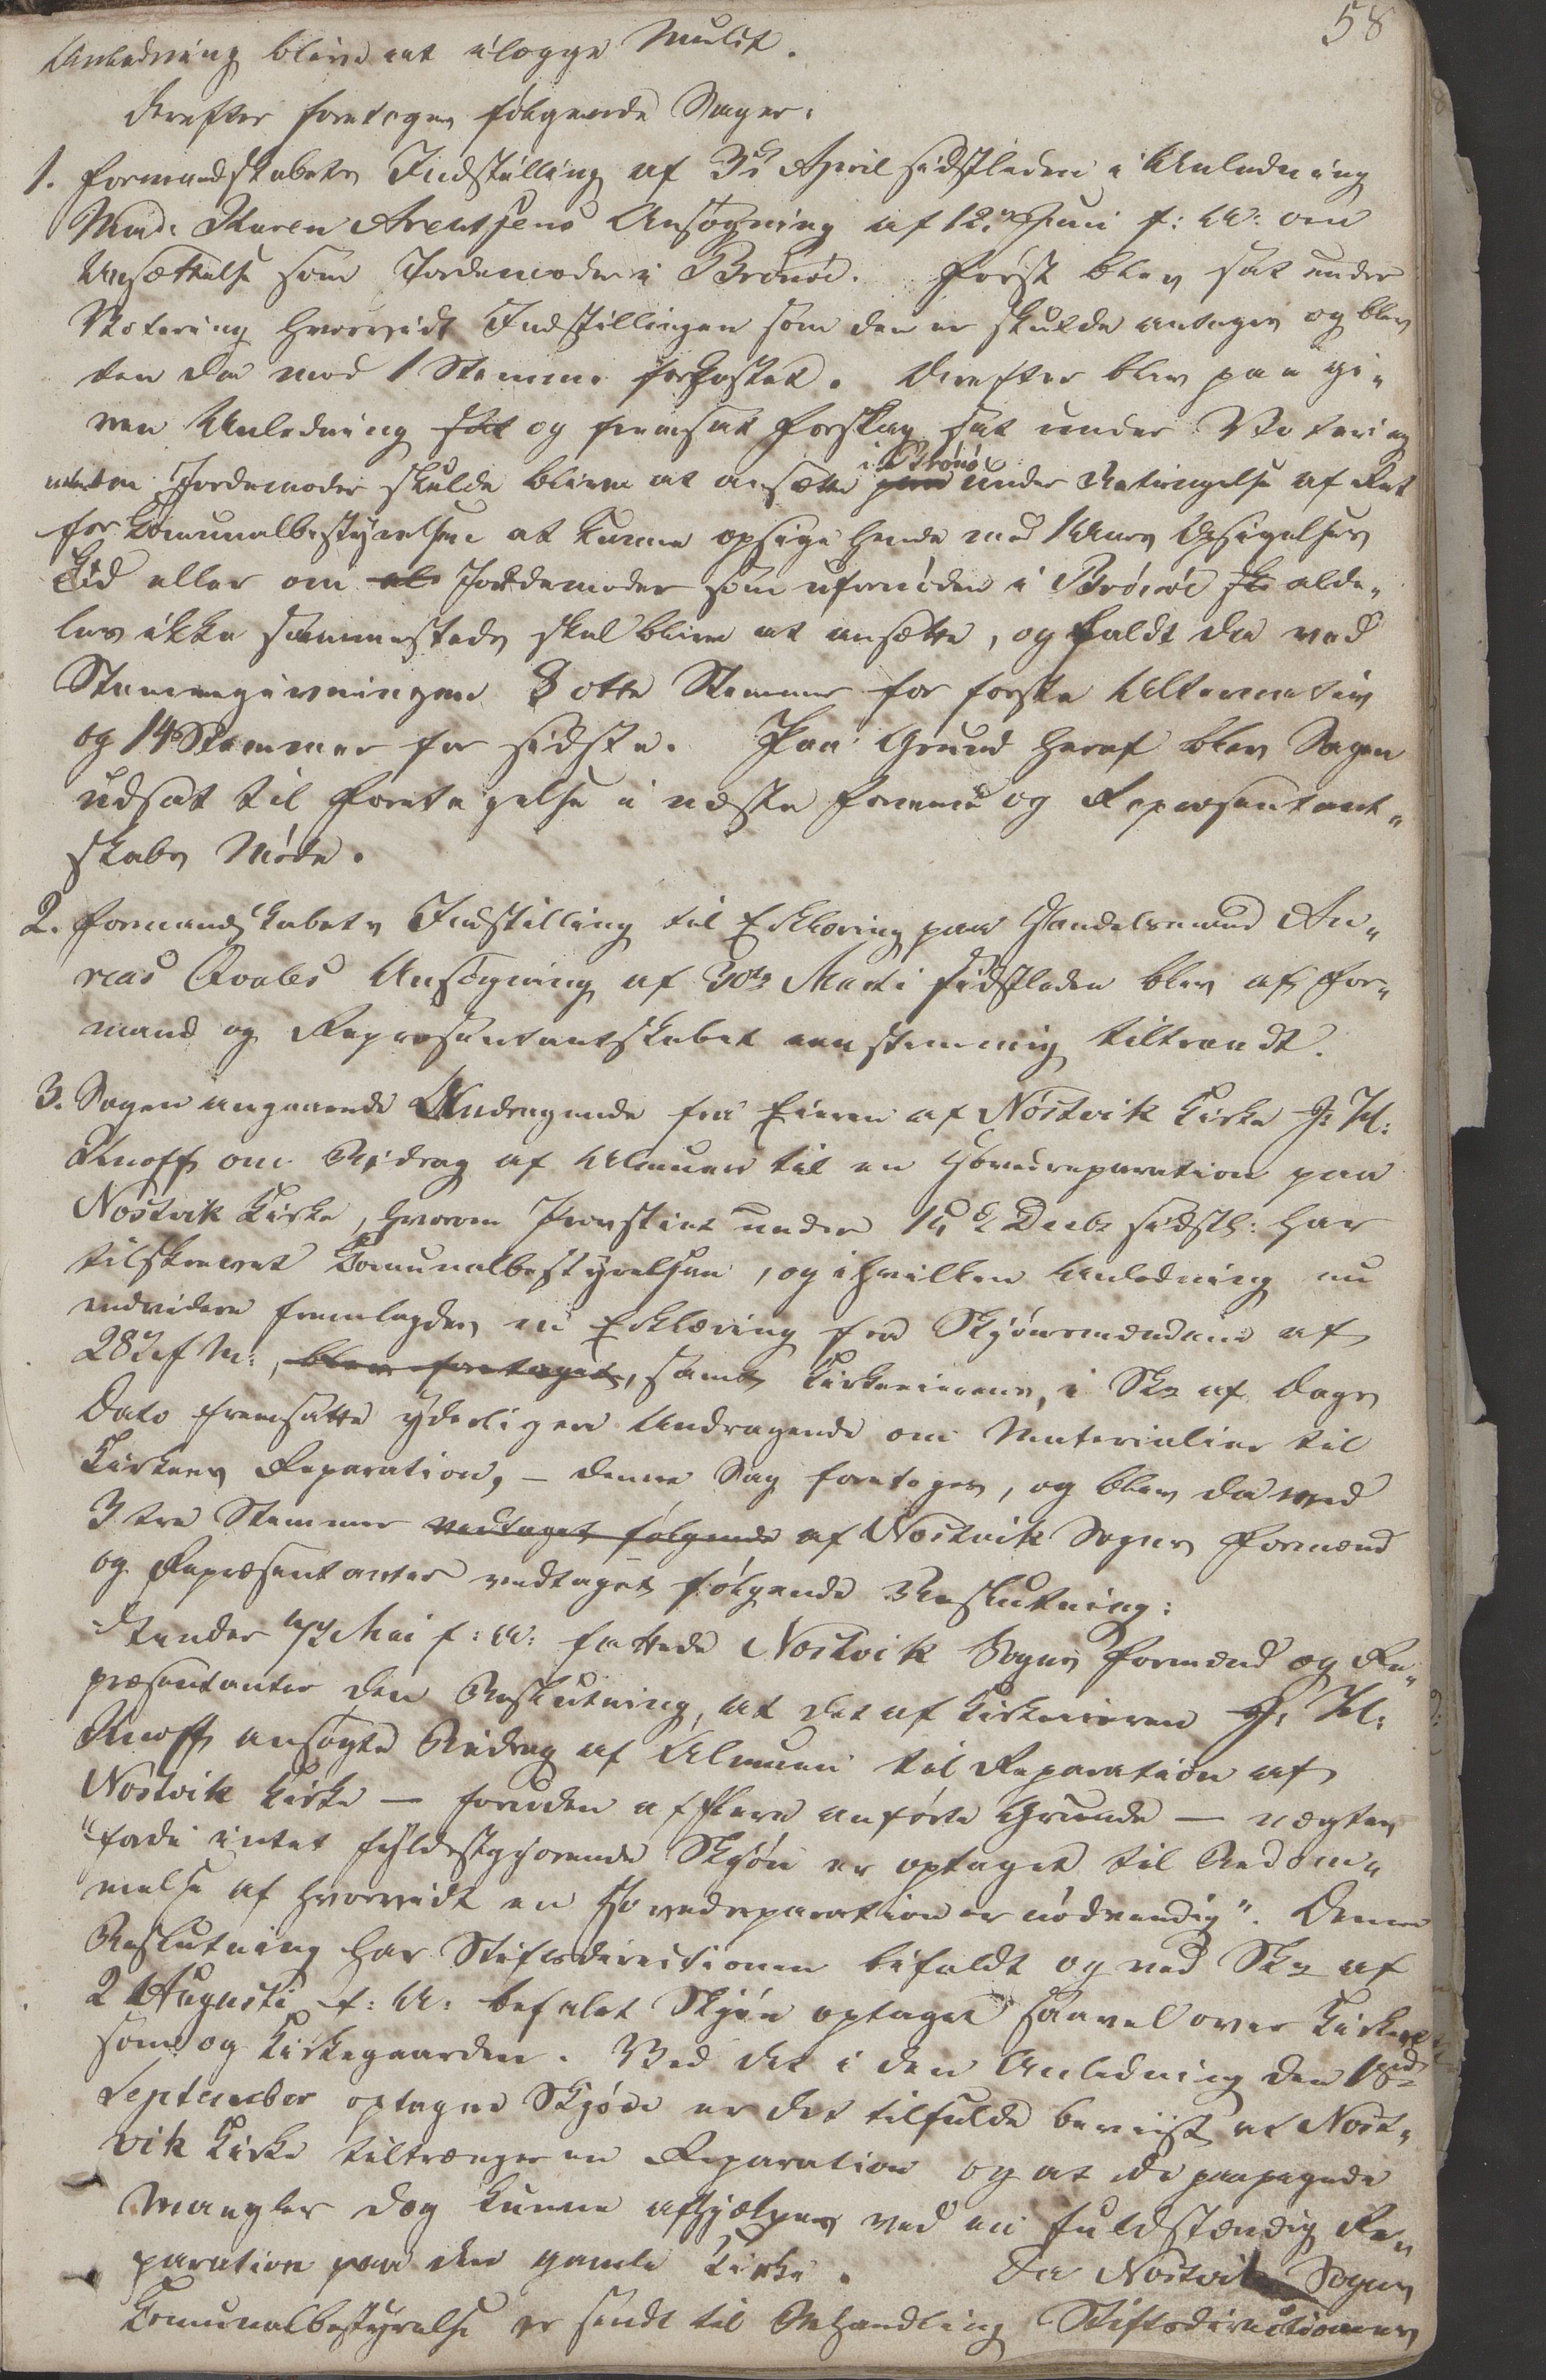 58
Anledning blive at ilægge Mulct.
Derefter foretoges følgende Sager:
1. Formandskabets Indstilling af 3de April sidstleden i Anledning
Mad. Karen Arentsens Ansøgning af 12te Juni f: A: om
Ansættelse som Jordemoder i Brønøe. Først blev sat under
Votering hvorvidt Indstillingen som den er skulde antages og blev
den da mod 1 Stemme forkastet. Derefter blev paa gi-
ven Anledning sat og fremsat Forslag sat under Votering
enten Jordemoder skulde blive at ansætte i Brønø under Betingelse af Ret
for Communalbestyrelsen at kunne opsige hende med 1 Aars Opsigelses
Tid eller om al Jordemoder som ufornøden i Brønøe sk alde-
les ikke sammesteds skal blive at ansætte, og faldt da ved
Stemmegivningen 8 otte Stemmer for første Alternativ
og 14 Stemmer for sidste. Paa Grund heraf blev Sagen
udsat til Foretagelse i næste Formands og Repræsentant-
skabs Møde.
2. Formandskabets Indstilling til Erklæring paa Handelsmand An-
reas Qvales Ansøgning af 30te Marti sidstleden blev af For-
mand og Repræsentantskabet eenstemmig tiltraadt.
3. Sagen angaaende Andragende fra Eieren af Nøstvik Kirke J: H:
Knoff om Bidrag af Almuen til en Hovedreparation paa
Nøstvik Kirke, hvorom Provstiet under 14de Decbr sidstl: har
tilskrevet Communalbestyrelsen, og i hvilken Anledning nu
endvidere fremlagdes en Erklæring fra Skjønsmændene af
28de f M:, blev foretaget, samt Kirkeeierens, i Skr af Dags
Dato fremsatte yderligere Andragende om Materialier til
Kirkens Reparation, – denne Sag foretoges, og blev da med
3 tre Stemmer vedtaget følgende af Nøstvik Sogns Formænd
og Repræsentanter vedtaget følgende Beslutning:
Under 7de Mai f: A: fattede Nøstvik Sogns Formænd og Re-
præsentanter den Beslutning, at det af Kirkeeieren J: H:
Knoff ansøgte Bidrag af Almuen til Reparation af
Nøstvik Kirke – foruden af flere anførte Grunde – nægtes
"fordi intet fyldestgjørende Skjøn er optaget til Bedøm-
melse af hvorvidt en Hovedreparation er nødvendig". Denne
Beslutning har Stiftsdirectionen bifaldt og ved Skr af
2 Augusti f: A: befalet Skjøn optaget saavel over Kirken
som og Kirkegaarden. Ved det i den Anledning den 18de
September optagne Skjøn er det tilfulde beviist at Nøst-
vik Kirke tiltrænger en Reparation og at de paapegede
Mangler dog kunne afhjælpes ved en fuldstændig Re-
paration paa den gamle Kirke. Da Nøstvik Sogns
Communalbestyrelse er sendt til Behandling Stiftsdirectionens